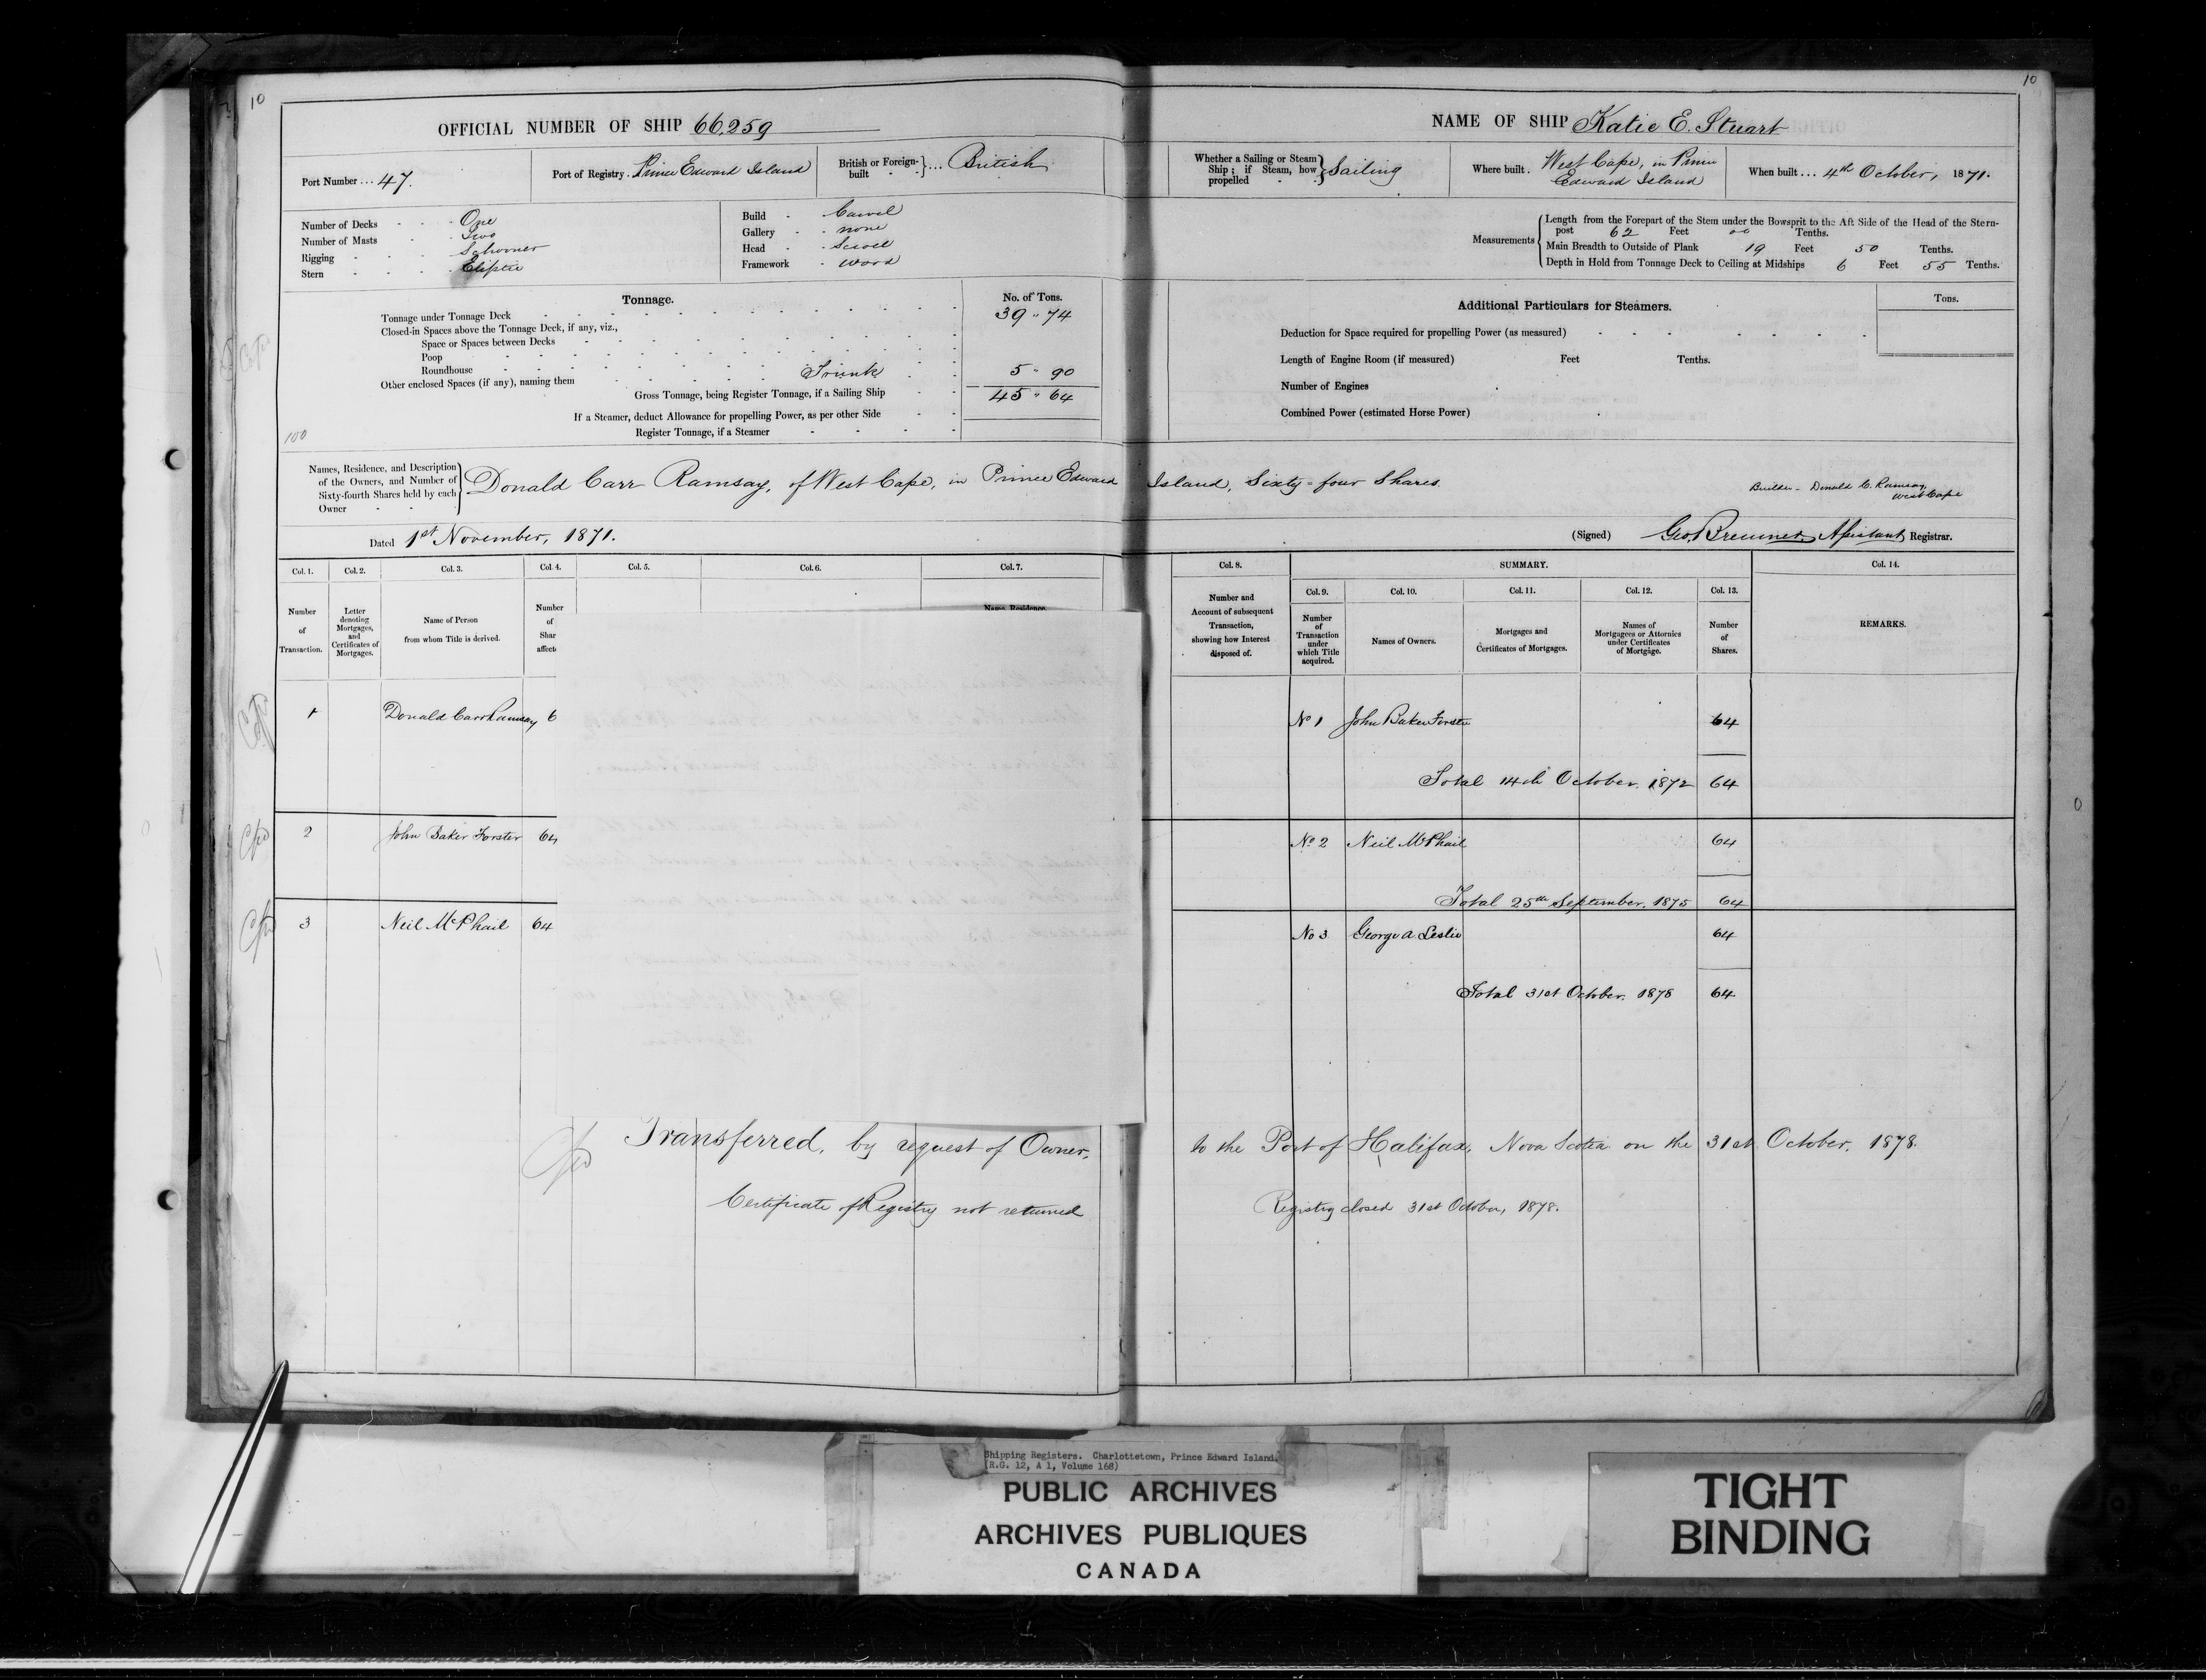 10
OFFICIAL NUMBER OF SHIP 66,259
Port Number ... 47.
Port of Registry . Prince Edward Island
British or Foreign-built - - } ... British
Number of Decks - - - One
Number of Masts - - Two
Rigging - - - Schooner
Stern - - - Eliptic
Build - Carvel
Gallery - none
Head - Scroll
Framework - wood
Tonnage.
No. of Tons.
Tonnage under Tonnage Deck 39 " 74
Closed-in Spaces above the Tonnage Deck, if any, viz.,
Space or Spaces between Decks
Poop
Roundhouse
Other enclosed Spaces (if any), naming them Trunk 5 " 90
Gross Tonnage, being Register Tonnage, if a Sailing Ship 45 " 64
If a Steamer, deduct Allowance for propelling Power, as per other Side
Register Tonnage, if a Steamer
100
10
NAME OF SHIP Katie E. Stuart
Whether a Sailing or Steam Ship; if Steam, how propelled - - } Sailing
Where built . West Cape, in Prince
Edward Island
When built ... 4th October, 1871.
Measurements
Length from the Forepart of the Stem under the Bowsprit to the Aft Side of the Head of the Stern-
post 62 Feet 00 Tenths.
Main Breadth to Outside of Plank 19 Feet 50 Tenths.
Depth in Hold from Tonnage Deck to Ceiling at Midships 6 Feet 55 Tenths.
Additional Particulars for Steamers.
Tons.
Deduction for Space required for propelling Power (as measured)
Length of Engine Room (if measured) Feet Tenths.
Number of Engines
Combined Power (estimated Horse Power)
Names, Residence, and Description
of the Owners, and Number of
Sixty-fourth Shares held by each
Owner - -
Donald Carr Ramsay, of West Cape, in Prince Edward Island, Sixty-four Shares.
Builder - Donald C. Ramsay,
West Cape
Dated 1st November, 1871.
(Signed) Geo. Bremner, Assistant Registrar.
Col. 1.
Col. 2.
Col. 3.
Col. 4.
Col. 5.
Col. 6.
Col. 7.
Number of Transaction.
Letter denoting Mortgages, and Certificates of Mortgages.
Name of Person from whom Title is derived.
Number of Shar affect
Name, Residence
Col. 8.
SUMMARY.
Col. 14.
Number and Account of subsequent Transaction, showing how Interest disposed of.
Col. 9.
Col. 10.
Col. 11.
Col. 12.
Col. 13.
Number of Transaction under which Title acquired.
Names of Owners.
Mortgages and Certificates of Mortgages.
Names of Mortgagees or Attornies under Certificates of Mortgage.
Number of Shares.
REMARKS.
1 Donald Carr Ramsay 6
No 1 John Baker Forster 64
Total 14th October, 1872 64
2 John Baker Forster 64
No 2 Neil McPhail 64
Total 25th September, 1875 64
3 Neil McPhail 64
No 3 George A. Leslie 64
Total 31st October, 1878 64
Transferred, by request of Owner, to the Port of Halifax, Nova Scotia on the 31st October, 1878.
Certificate of Registry not returned Registry closed 31st October, 1878.
Shipping Registers. Charlottetown, Prince Edward Island.
(R.G. 12, A 1, Volume 168)
PUBLIC ARCHIVES
ARCHIVES PUBLIQUES
CANADA
TIGHT
BINDING